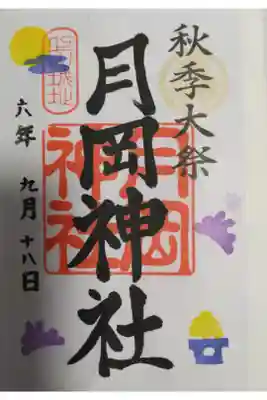 秋季大祭
月岡神社
月岡
神社
上山城址
六年 九月 十八日